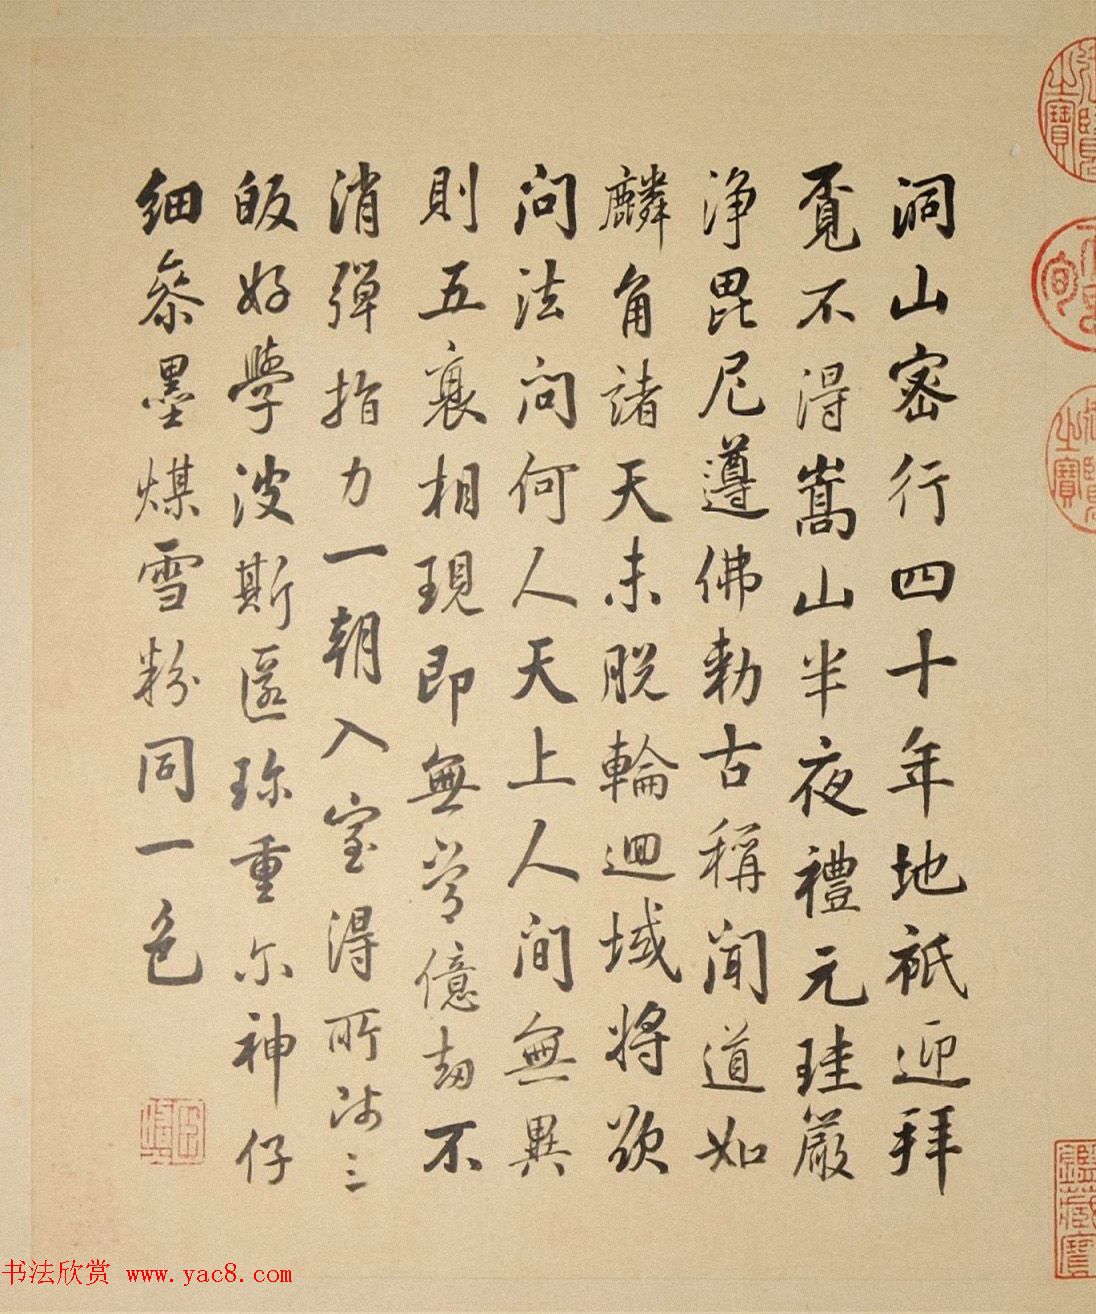 洞山密行四十年地祇迎拜
覔不得嵩山半夜禮元珪嚴
浄毘尼遵佛勅古稱聞道如
麟角諸天未脱輪迴域將欲
問法問何人天上人間無異
則五衰相現即無常億劫不
消彈指力一朝入室得所师三
皈好學波斯匿珎重尔神仔
细叅墨煤雪粉同一色
书法欣赏 www.yac8.com